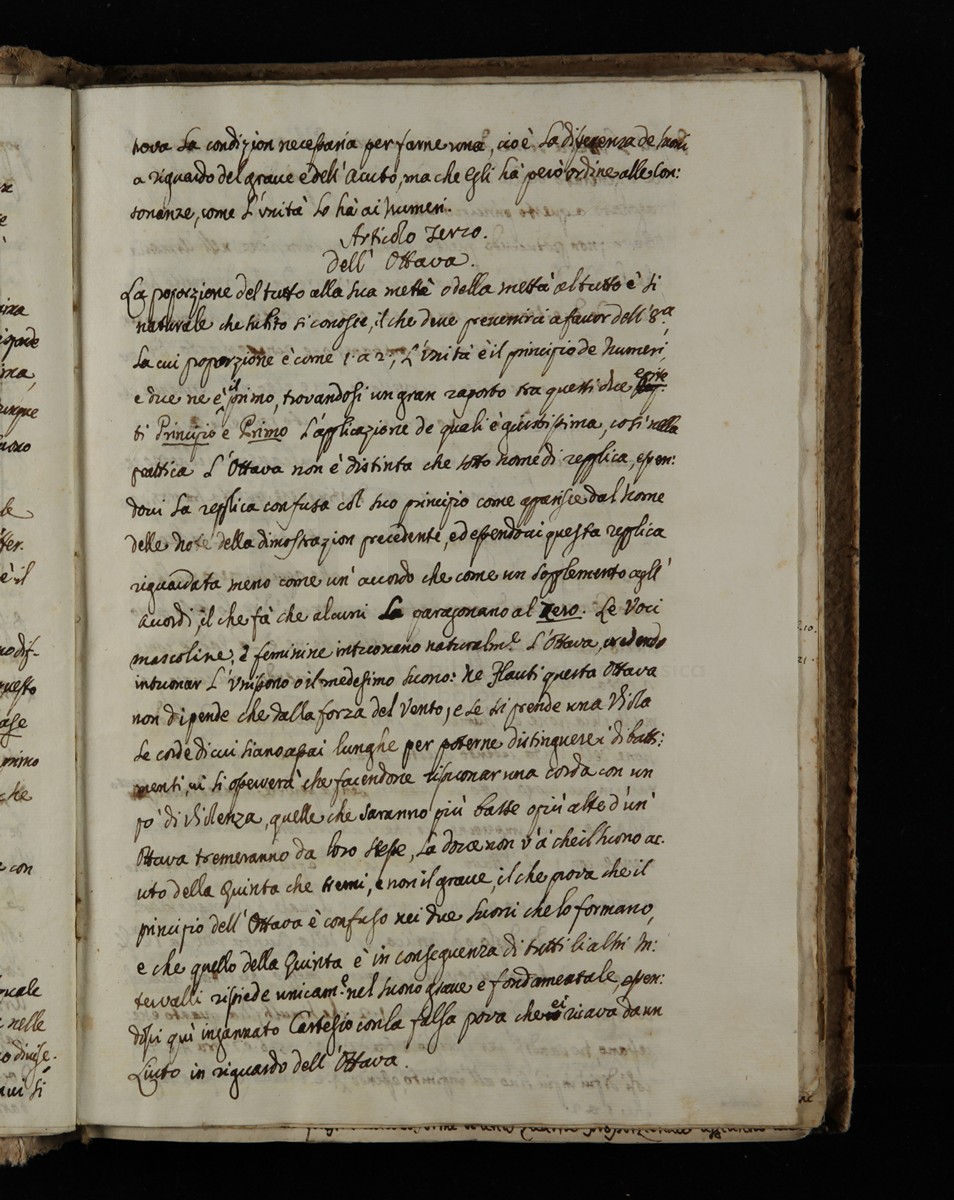 trova la condizion necessaria per farne una, cioè la diferenza de suoni
a riguardo del grave e dell' Acuto, ma che Egli hà però ordine alle Con:
sonanze, come L'Vnità Lo hà ai Numeri.
Articolo Terzo.
dell' Ottava.
La proporzione del tutto alla sua metta ò della metta al tutto è si
naturale che subito si conosce, il che deve prevenirci a favor dell' 8.a,
La cui proporzione è come 1. a 2., L'Vnità è il principio de Numeri,
e due ne è il primo, trovandosi un gran raporto tra questi due
ti Principio e Primo L'applicazione de quali è giustissima, così nella
prattica L'Ottava non è distinta che sotto nome di replica, essen:
dovi La replica confusa col suo principio come apparisce dal Nome
delle Note della dimostrazion precedente, ed essendovi questa replica
riguardata meno come un' accordo che come un Sopplemento agli'
Accordi, il che fà che alcuni La paragonano al Zero. Le Voci
mascoline, è feminine intuonano naturalm.e L'Ottava, credendo
intuonar L'Vnisono o il medesimo suono: Ne Flauti questa Ottava
non dipende che dalla forza del Vento, e se si prende una Viola
Le corde di cui siano assai lunghe per poterne distinguere i di batti:
menti, vi si osserverà che facendone risuonar una corda con un
pò di violenza, quelle che saranno più basse o più alte d'un'
Ottava tremeranno da loro stesse, La dove non v'à che il suono ac:
uto della Quinta che tremi, e non il grave, il che prova che il
principio dell' Ottava è confuso nei due suoni che lo formano,
e che quello della Quinta è in conseguenza di tutti li altri In:
tervalli risiede unicam.e nel suono grave e fondamentale, essen:
dosi quì ingannato Cartesio con la falsa prova che ei ricava da un
Liuto in riguardo dell' Ottava.